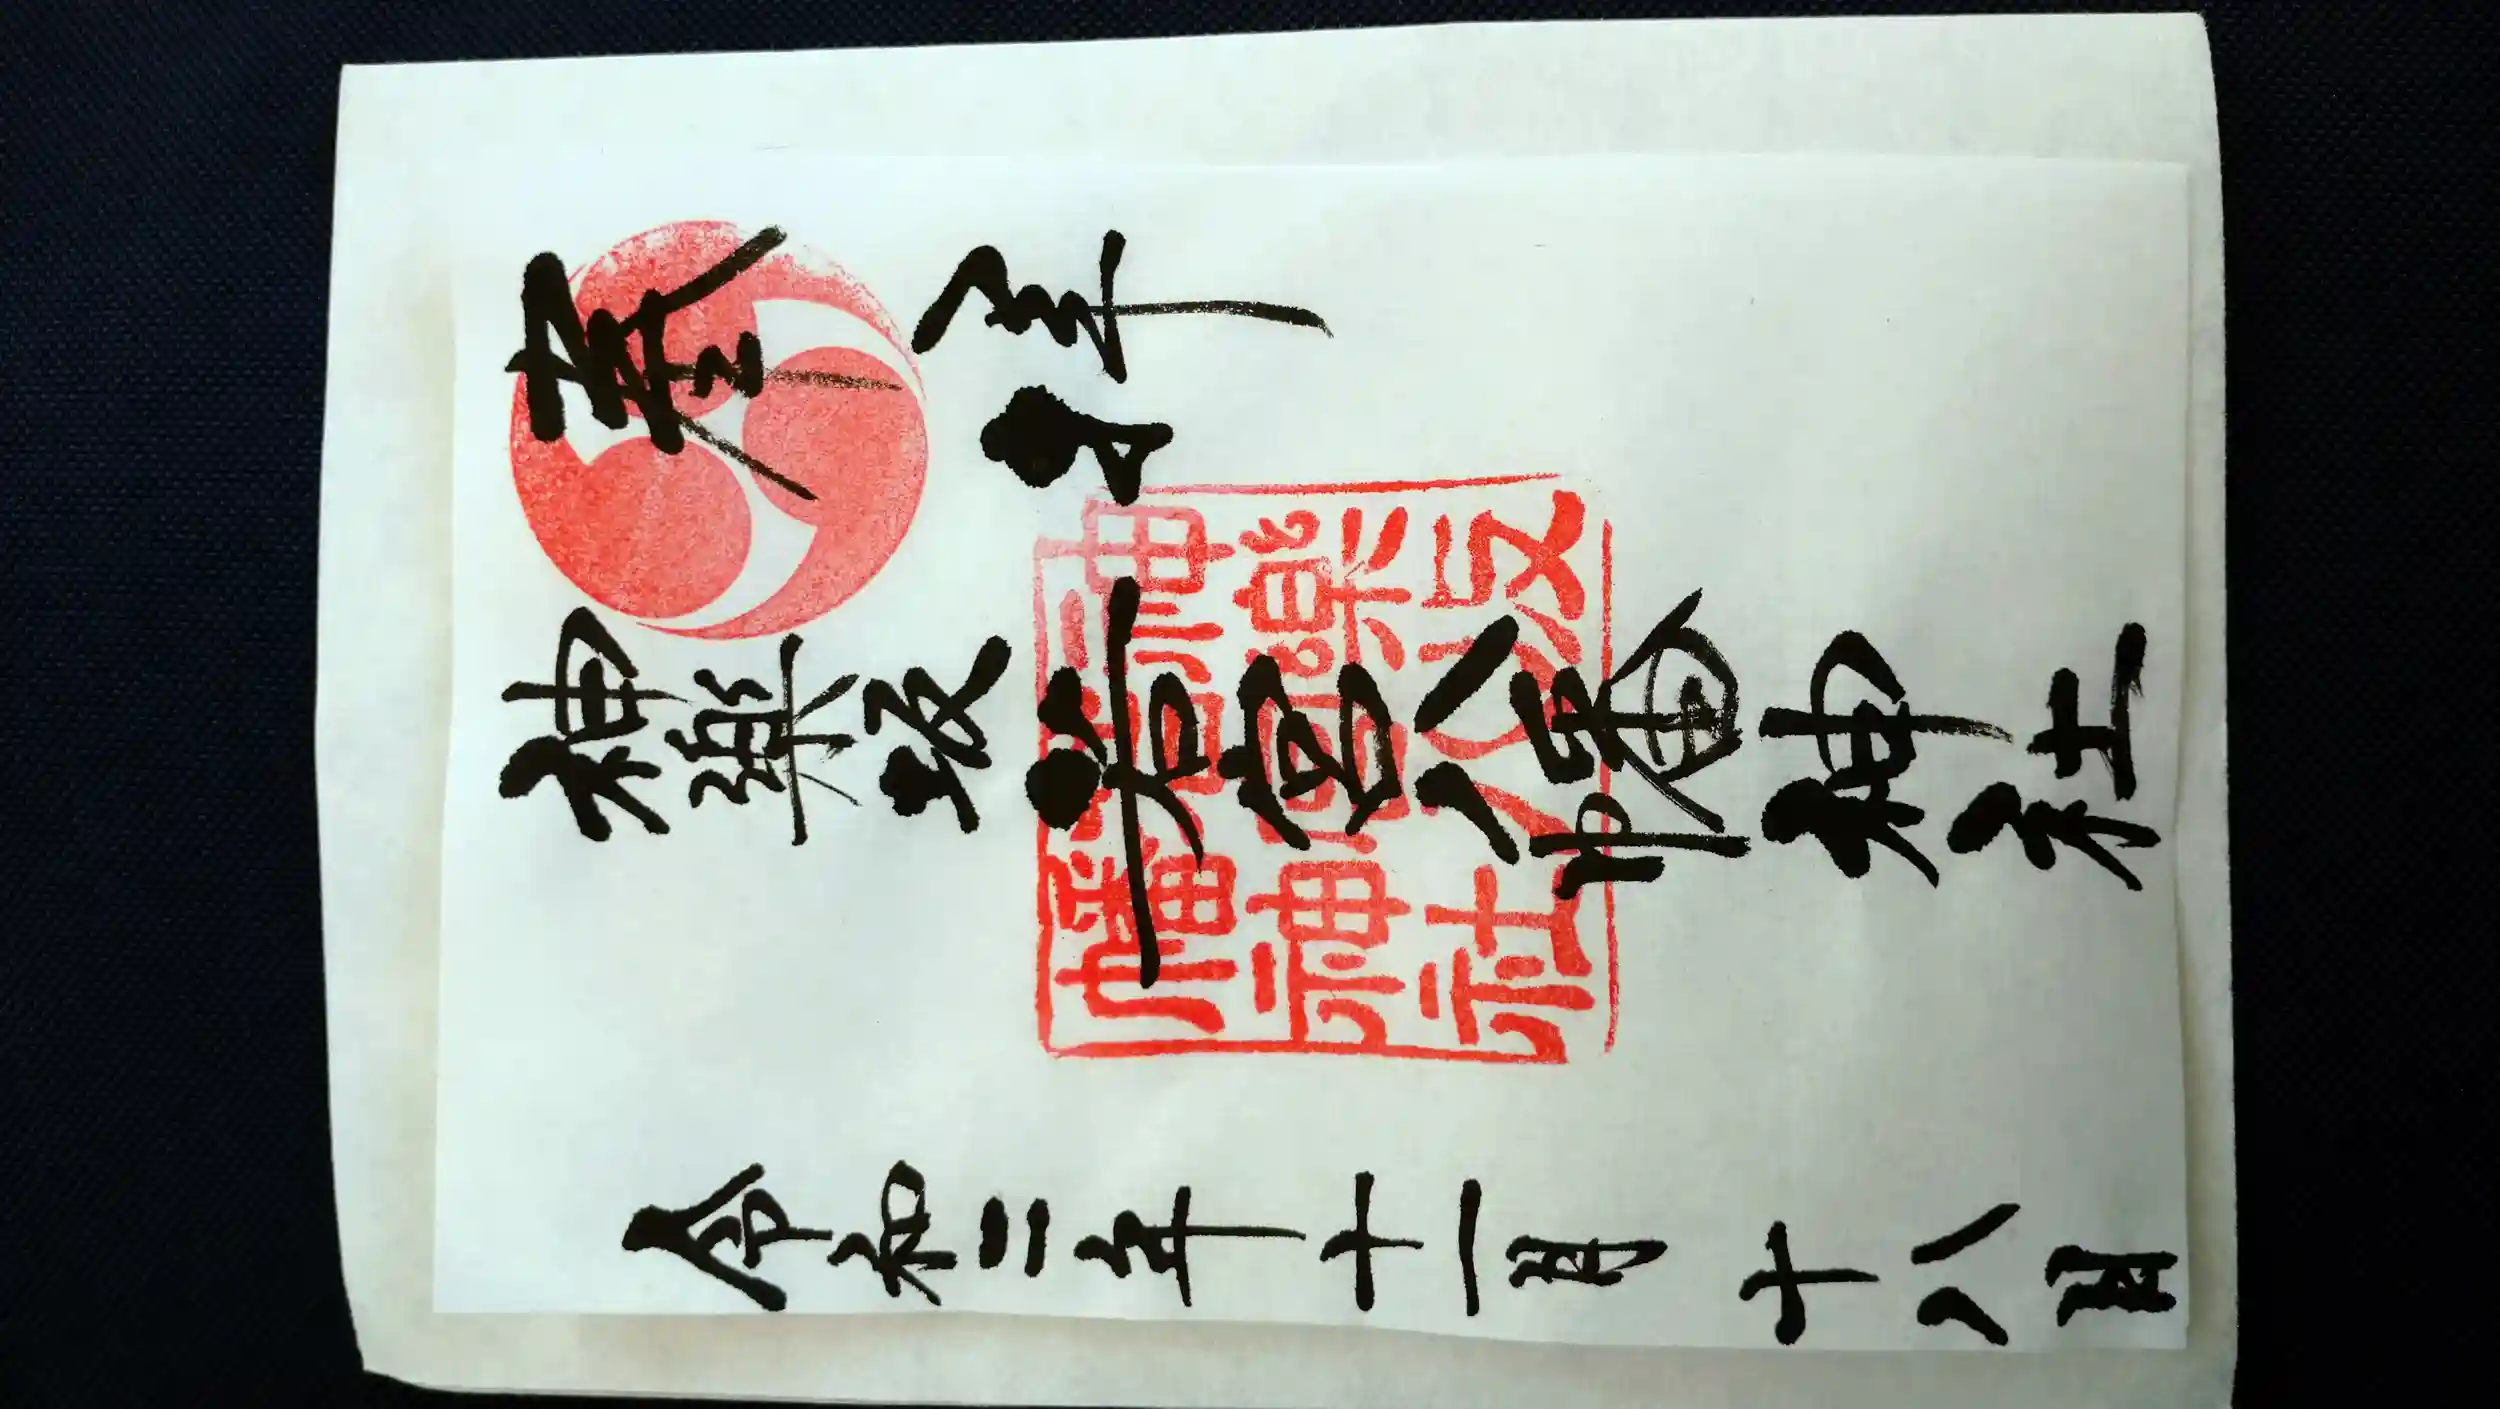 奉拝
神楽坂若宮八幡神社
令和二年十一月十八日
神楽坂
若宮八
幡神社